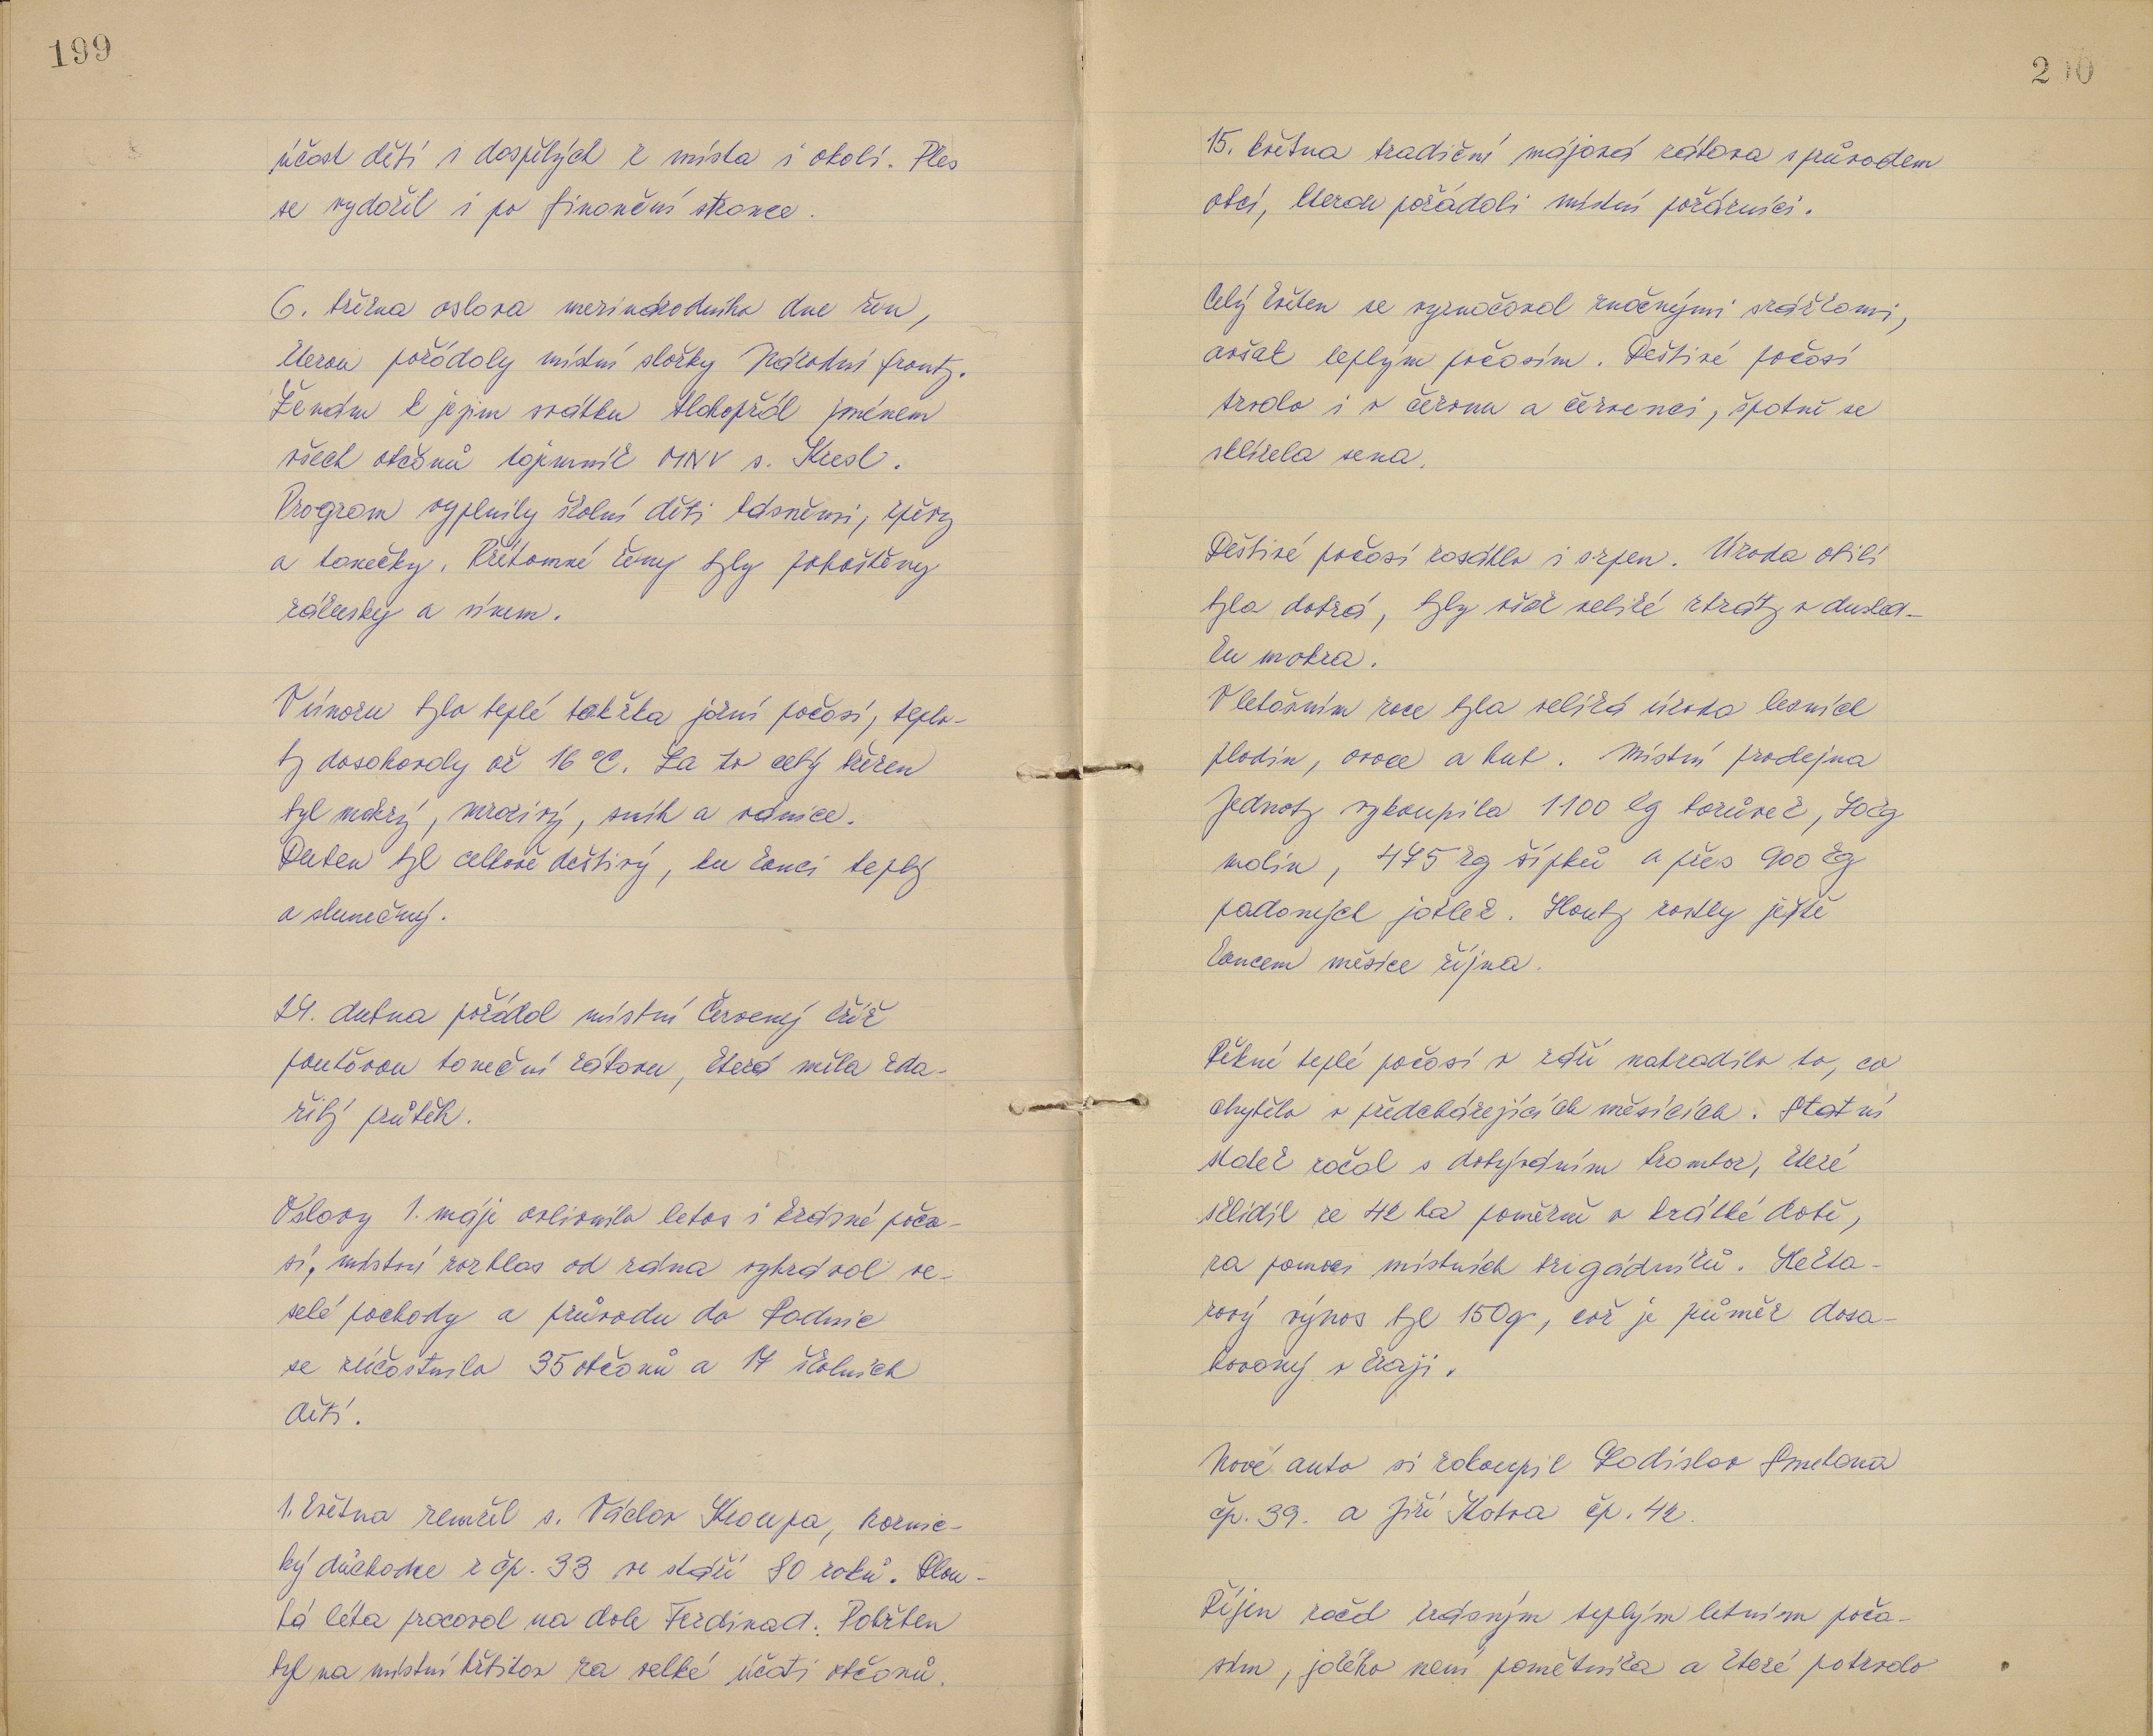 199
účast dětí i dospělých z místa i okolí. Ples
se vydařil i po finanční stránce.
6. března oslava mezinárodního dne žen,
kterou pořádaly místní složky Národní fronty.
Ženám k jejim svátku blahopřál jménem
všech občanů tajemník MNV s. Kresl.
Program vyplnily školní děti básněmi, zpěvy
a tanečky. Přítomné ženy byly pohoštěny
zákusky a vínem.
V únoru bylo teplé takřka jarní počasí, teplo-
ty dosahovaly až 16 °C. Za to celý březen
byl mokrý, mrazivý, sníh a vánice.
Duben byl celkově deštivý, ku konci teplý
a slunečný.
24. dubna pořádal místní Červený kříž
pouťovou taneční zábavu, která měla zda-
řilý průběh.
Oslavy 1. máje ovlivnilo letos i krásné poča-
sí, místní rozhlas od rána vyhrával ve-
selé pochody a průvodu do Radnic
se zúčastnilo 35 občanů a 17 školních
dětí.
1. května zemřel s. Václav Kroupa, hornic-
ký důchodce z čp. 33 ve stáří 80 roků. Dlou-
há léta pracoval na dole Ferdinad. Pohřben
byl na místní hřbitov za velké účati občanů.
200
15. května tradiční májová zábava s průvodem
obcí, kterou pořádali místní požárníci.
Celý květen se vyznačoval značnými srážkami,
avšak teplým počasím. Deštivé počasí
trvalo i v červnu a červenci, špatně se
sklízela sena.
Deštivé počasí zasáhlo i srpen. Úroda obilí
byla dobrá, byly však veliké ztráty v dusled-
ku mokra.
V letošním roce byla veliká úroda lesních
plodin, ovoce a hub. Místní prodejna
Jednoty vykoupila 1100 kg borůvek, 70 kg
malin, 475 kg šípků a přes 900 kg
padaných jablek. Houby rostly ještě
koncem měsíce října.
Pěkné teplé počasí v září nahradilo to, co
chybělo v předcházejících měsících. Statní
statek začal s dobýváním brambor, které
sklidil ze 42 ha poměrně v krátké době,
za pomoci místních brigádníků. Hekta-
rový výnos byl 150q, což je průměr dosa-
hovaný v kraji.
Nové auto si zakoupil Ladislav Smetana
čp. 39. a Jiří Kotva čp. 42.
Říjen začal krásným teplým letním poča-
sím, jakého není pamětníka a které potrvalo